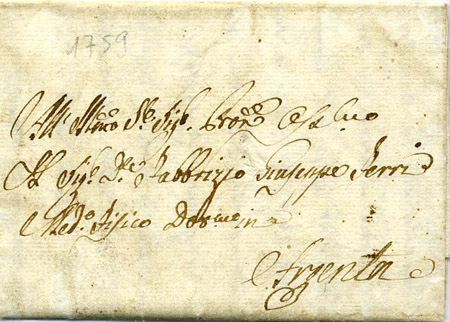 1759
All' Illmo Sig.r Sig.r Prone
Il Sig.r D.r Fabbrizio Giuseppe Ferri
Medo Fisico in
Argenta